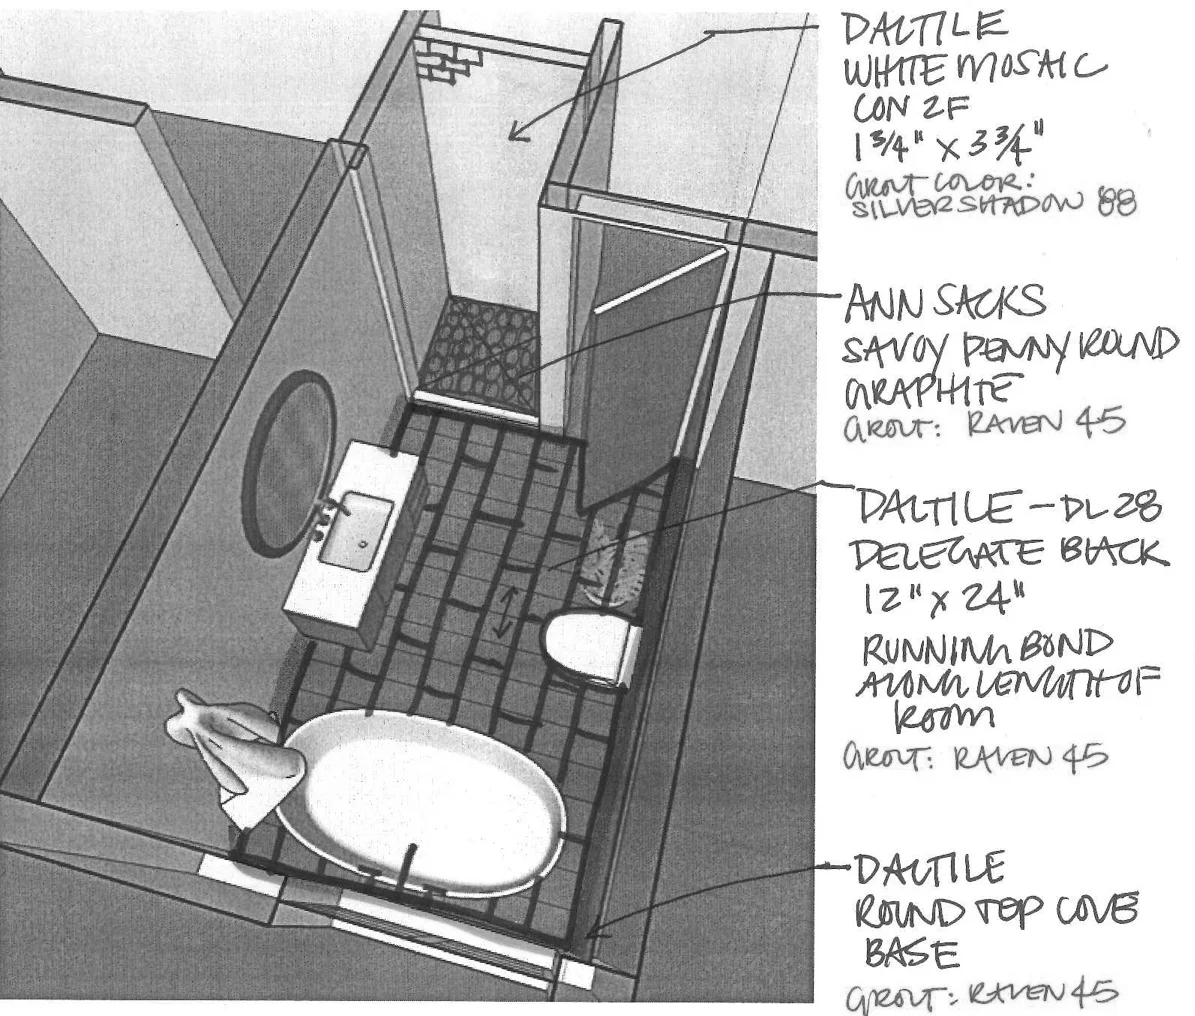 DALTILE
WHITE MOSAIC
CON 2F
1 3/4" X 3 3/4"
GROUT COLOR:
SILVER SHADOW 88
ANN SACKS
SAVOY PENNY ROUND
GRAPHITE
GROUT: RAVEN 45
DALTILE - DL28
DELEGATE BLACK
12" X 24"
RUNNING BOND
ALONG LENGTH OF
ROOM
GROUT: RAVEN 45
DALTILE
ROUND TOP COVE
BASE
GROUT: RAVEN 45